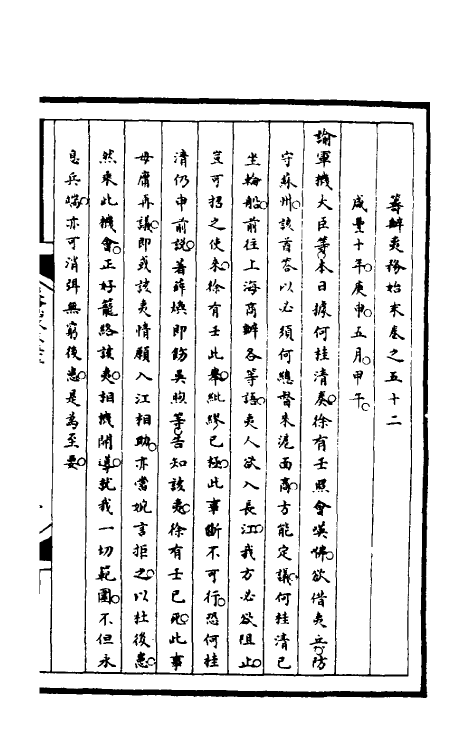 籌辦夷務始末卷之五十二
咸豐十年。庚申。五月。甲午。
諭軍機大臣等。本日據何桂清奏。徐有壬照會嘆咈。欲借夷兵。防
守蘇州。該酋荅以必須何總督來滬面商。方能定議。何桂清已
坐輪船。前往上海商辦各等語。夷人欲入長江。我方必欲阻止。
豈可招之使來。徐有壬此舉。紕繆已極。此事斷不可行。恐何桂
清仍申前說。著薛煥即飭吳煦等。告知該夷。徐有壬已死。此事
毋庸再議。即或該夷情願入江相助。亦當婉言拒之。以杜後患。
然乘此機會。正好籠絡該夷。相機開導。就我一切範圍。不但永
息兵端。亦可消弭無窮後患。是為至要。